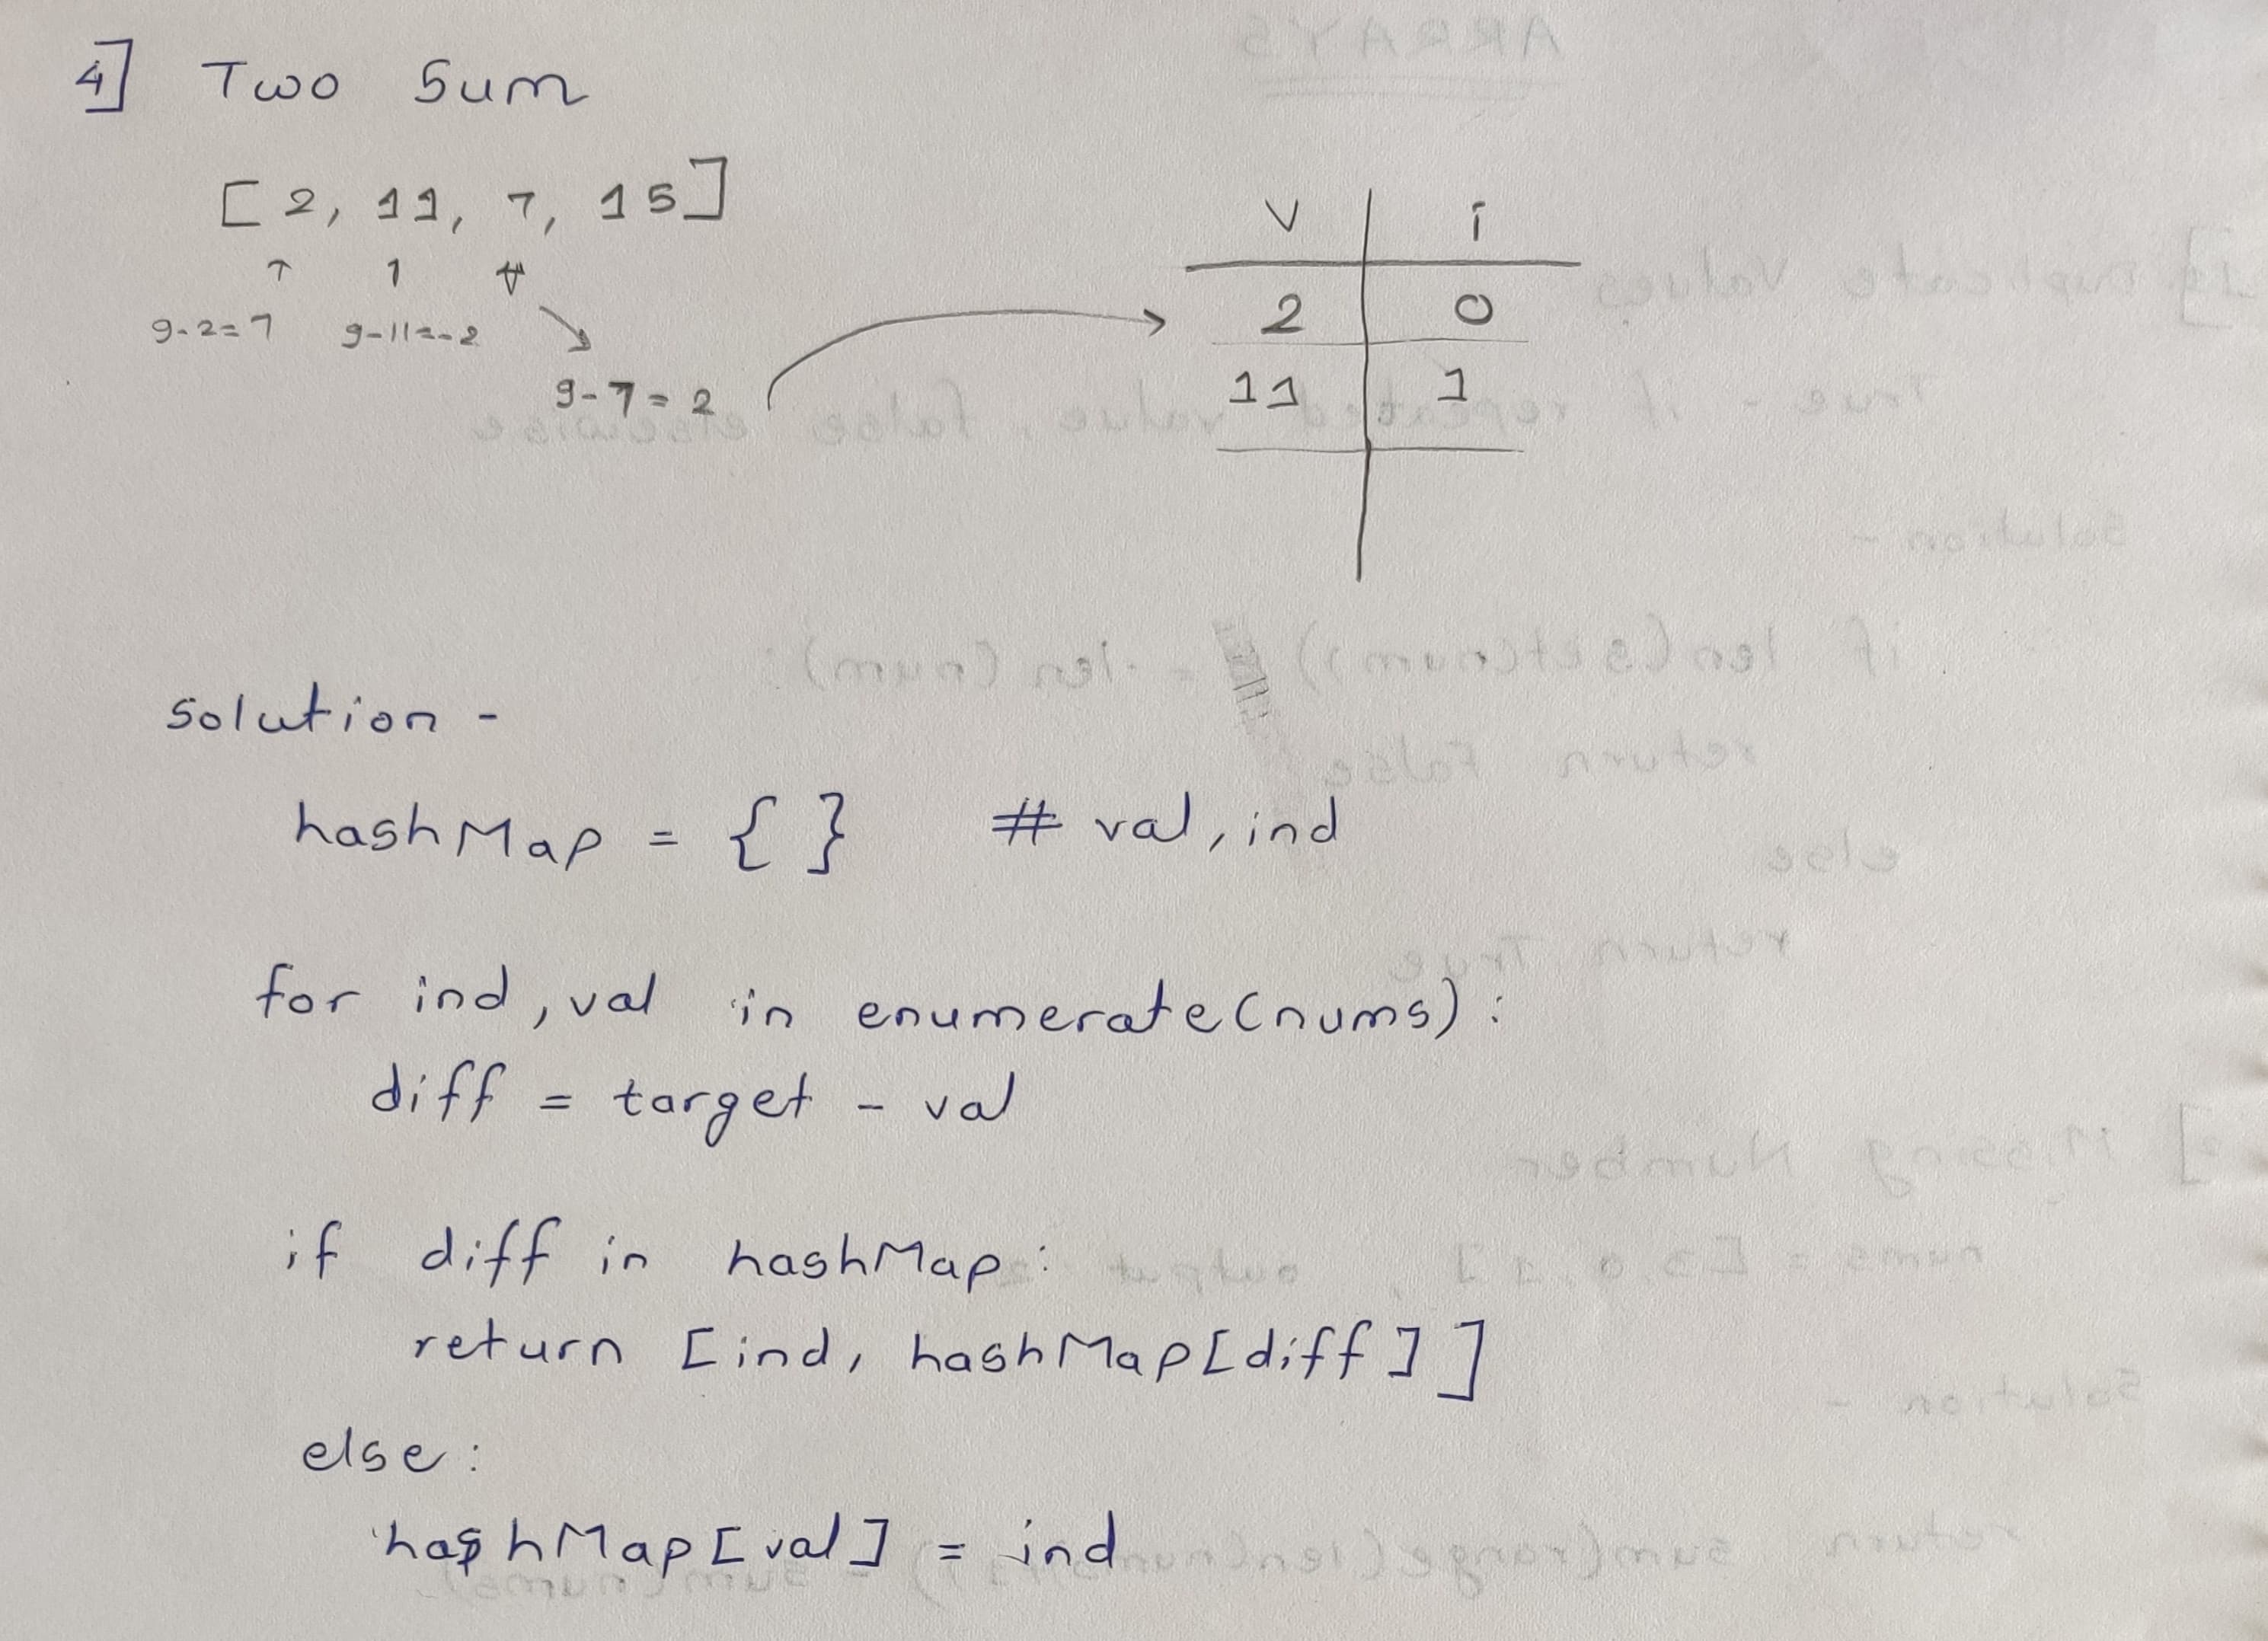 4] Two Sum
[2, 11, 7, 15]
9-2=7 9-11=-2
9-7=2
V i
2 0
11 1
solution -
hashMap = { } # val, ind
for ind, val in enumerate(nums):
diff = target - val
if diff in hashMap:
return [ind, hashMap[diff]]
else:
hashMap[val] = ind